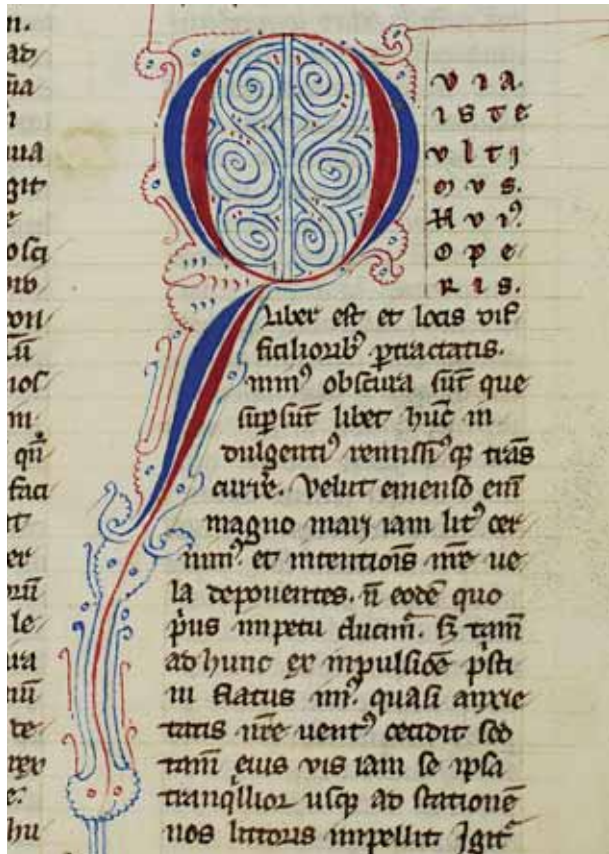 ad
git
osci
nos
faci
er
le
te
hu
Q
VIA
ISTE
VLTI
MVS.
HVI⁹
OPE
RIS.
Liber est et locis dif
ficiliorib⁹ ꝑtractatis.
min⁹ obscura sūt que
suꝑsūt libet hūc in
dulgenti⁹ remissi⁹qꝫ trās
curre. Velut emenso em̄
magno mari iam lit⁹ cer
nim⁹. et intentiōis nr̄e ue
la deponentes. n̄ eodē quo
p̄us impetu ducim̄. sꝫ tam̄
ad hunc ex inpulsiōe p̄sti
ni flatus quasi anxie
tatis nr̄e uent⁹ cecidit sed
tam̄ eius vis iam se ipsa
tranqͥllior usqꝫ ad stationē
nos littoris impellit Igit̄